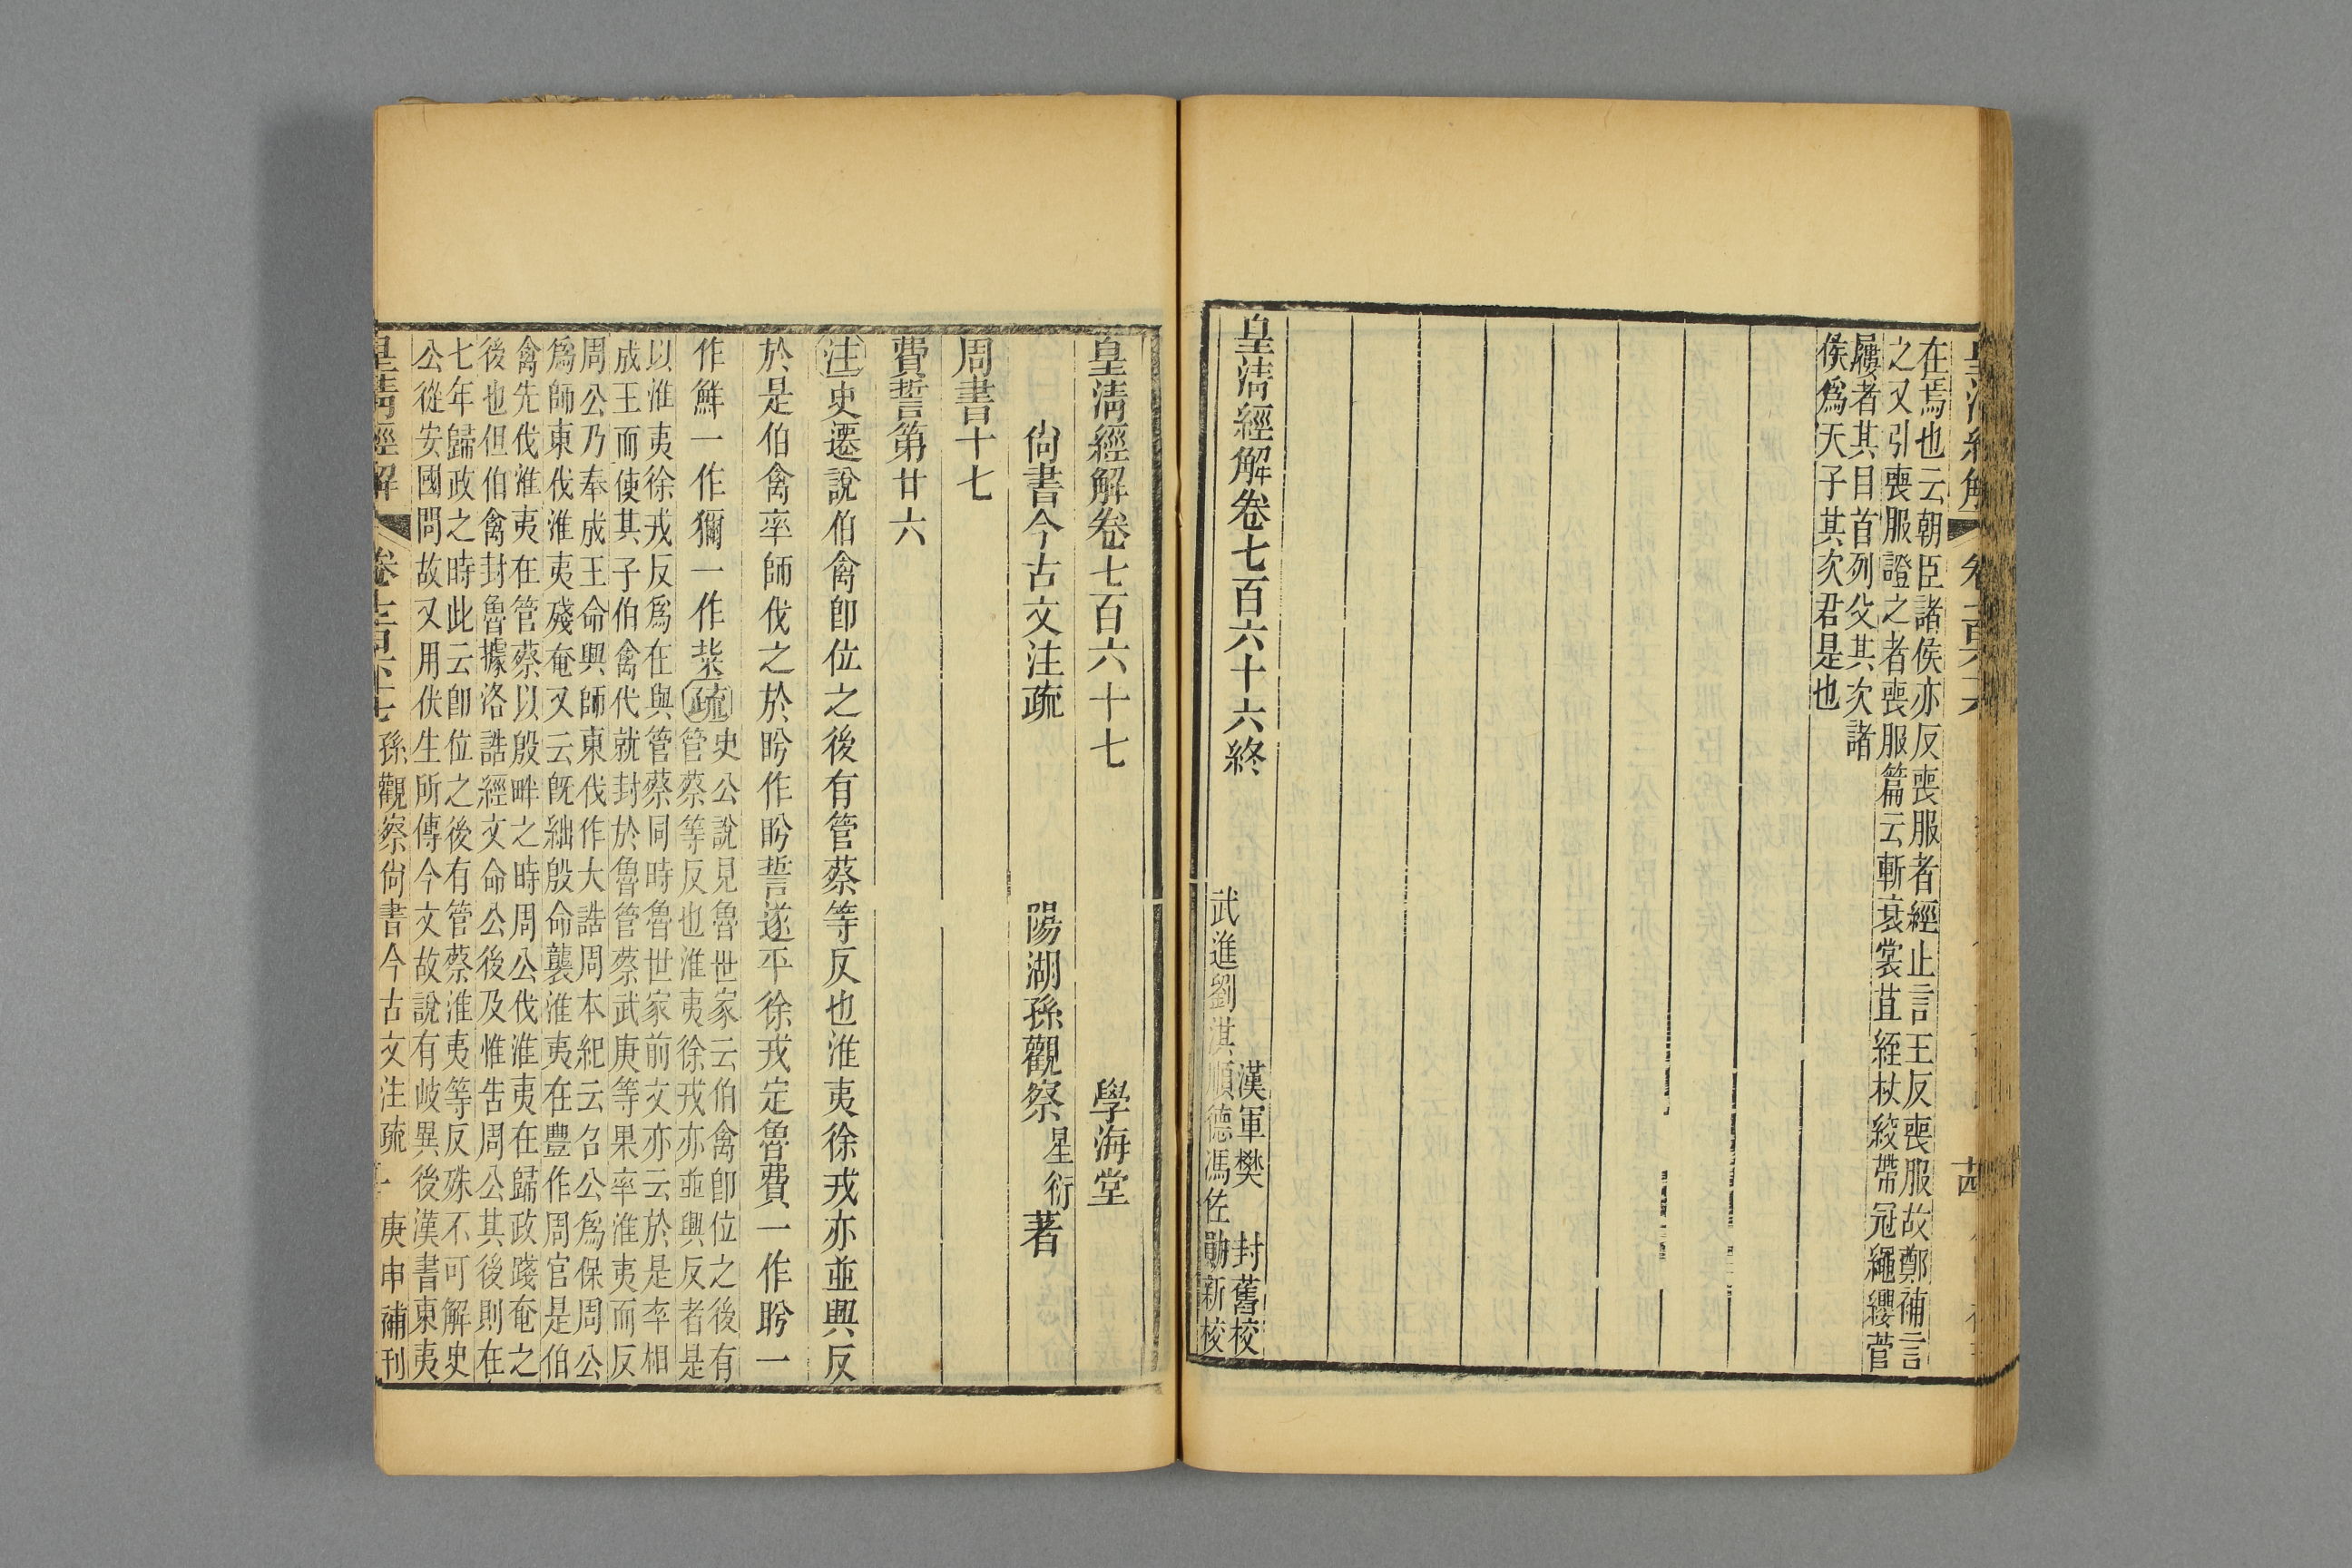 在焉也云朝臣諸侯亦反喪服者經止言王反喪服故鄭補言
之又引喪服證之者喪服篇云斬衰裳苴絰杖絞帶冠繩纓菅
屨者其目首列父其次諸
侯爲天子其次君是也
漢軍樊封舊校
武進劉淇順德馮佐勛新校
皇淸經解卷七百六十六終
皇淸經解卷七百六十七
學海堂
尙書今古文注疏
陽湖孫觀察星衍著
周書十七
費誓第廿六
注史遷說伯禽卽位之後有管蔡等反也淮夷徐戎亦並興反
於是伯禽率師伐之於肸作肸誓遂平徐戎定魯費一作肸一
作鮮一作獮一作粊疏
史公說見魯世家云伯禽卽位之後有
管蔡等反也淮夷徐戎亦並興反者是
以淮夷徐戎反爲在與管蔡同時魯世家前文亦云於是率相
成王而使其子伯禽代就封於魯管蔡武庚等果率淮夷而反
周公乃奉成王命興師東伐作大誥周本紀云召公爲保周公
爲師東伐淮夷殘奄又云旣絀殷命襲淮夷在豐作周官是伯
禽先伐淮夷在管蔡以殷畔之時周公伐淮夷在歸政踐奄之
後也但伯禽封魯據洛誥經文命公後及惟告周公其後則在
七年歸政之時此云卽位之後有管蔡淮夷等反殊不可解史
公從安國問故又用伏生所傳今文故說有歧異後漢書東夷
皇淸經解 卷七百六十七 孫觀察尙書今古文注疏 一 庚申補刊